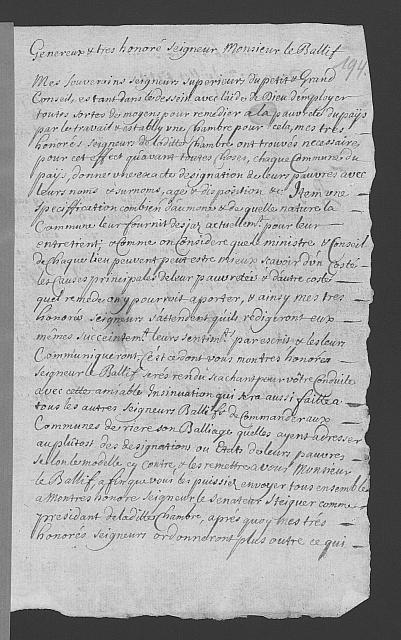 194.
Genereux & tres honoré Seigneur, Monsieur le Ballif
Mes Souverains Seigneurs Superieurs du petit & Grand
Conseil, estant dans le dessein avec l'aide de Dieu d'employer
toutes sortes de moyens pour remedier à la pauvreté du pays
par le travail & estably une Chambre pour cela, mes tres
honorés Seigneurs de la ditte Chambre, ont trouvé necessaire,
pour cet effect qu'avant toutes choses, chaque Commune du
pais, donne une exacte designation de leurs pauvres avec
leurs noms & surnoms, age & disposition &c. Item une
specification combien d'aumone & de quelle nature la
Commune leur fournit desja actuellemt. pour leur
entretient; & comme on Considere que le ministre & Conseil
de chaque lieu peuvent peut estre mieux scavoir d'un Costé
les Causes principales de leur pauvreté & d'autre costé
quel remede on y pourroit aporter, & ainsy mes tres
honorés Seigneurs s'attendent qu'ils redigeront eux
mêmes succeintemt. leurs sentimts. par escrit & les leur
Communiqueront, C'est ce dont vous mon tres honoré
Seigneur le Ballif serés rendu scachant pour vôtre Conduite
avec cette amiable Insinuation qui sera aussi faitte a
tous les autres Seigneurs Ballifs de Commander aux
Communes de riere son Balliage qu'elles ayent a dresser
au plûtost des designations ou Etats de leurs pauvres
selon le modelle cy contre, & les remettre a vous Monsieur
le Ballif, afin que vous les puissiés envoyer tous ensemble
a Mon tres honoré Seigneur le Senateur Steiguer comme
president de la ditte Chambre, apres quoy mes tres
honorés Seigneurs ordonneront plus outre ce qui